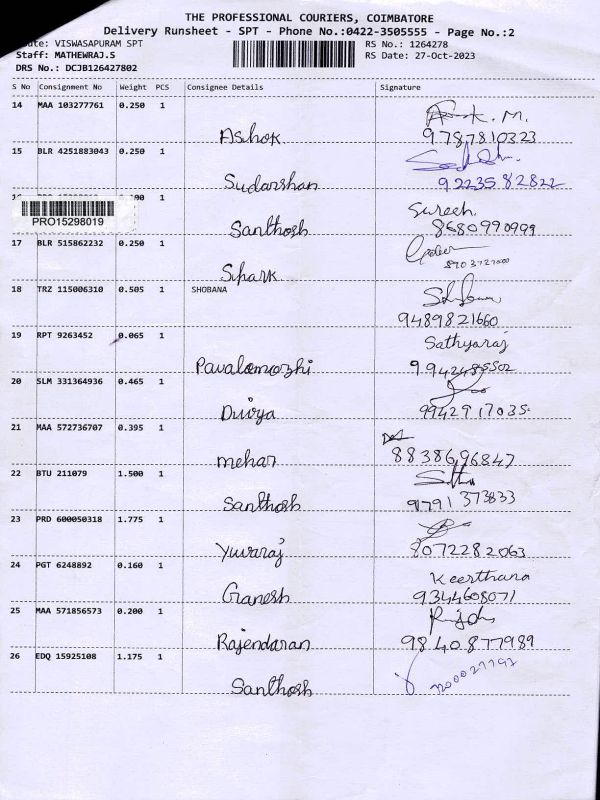 THE PROFESSIONAL COURIERS, COIMBATORE
Delivery Runsheet - SPT - Phone No.:0422-3505555 - Page No.:2
VISWASAPURAM SPT RS No.: 1264278
Staff: MATHEWRAJ.S RS Date: 27-Oct-2023
DRS No.: DCJB126427802
S No Consignment No Weight PCS Consignee Details Signature
14 MAA 103277761 0.250 1
Ashok 9787810323
15 BLR 4251883043 0.250 1
Sudarshan 9223582822
PRO15298019 1 Suresh.
Santhosh 8680990999
17 BLR 515862232 0.250 1
Spark
18 TRZ 115006310 0.505 1 SHOBANA
9489821660
19 RPT 9263452 0.065 1 Sathyaraj
Pavalamozhi 9942485502
20 SLM 331364936 0.465 1
Divya 9942917035
21 MAA 572736707 0.395 1
mehar 8838696847
22 BTU 211079 1.500 1
Santhosh 9791 373833
23 PRD 600050318 1.775 1
Yuvaraj 8072282063
24 PGT 6248892 0.160 1 Keerthana
Ganesh 9344608071
25 MAA 571856573 0.200 1
Rajendaran 9840877989
26 EDQ 15925108 1.175 1
Santhosh